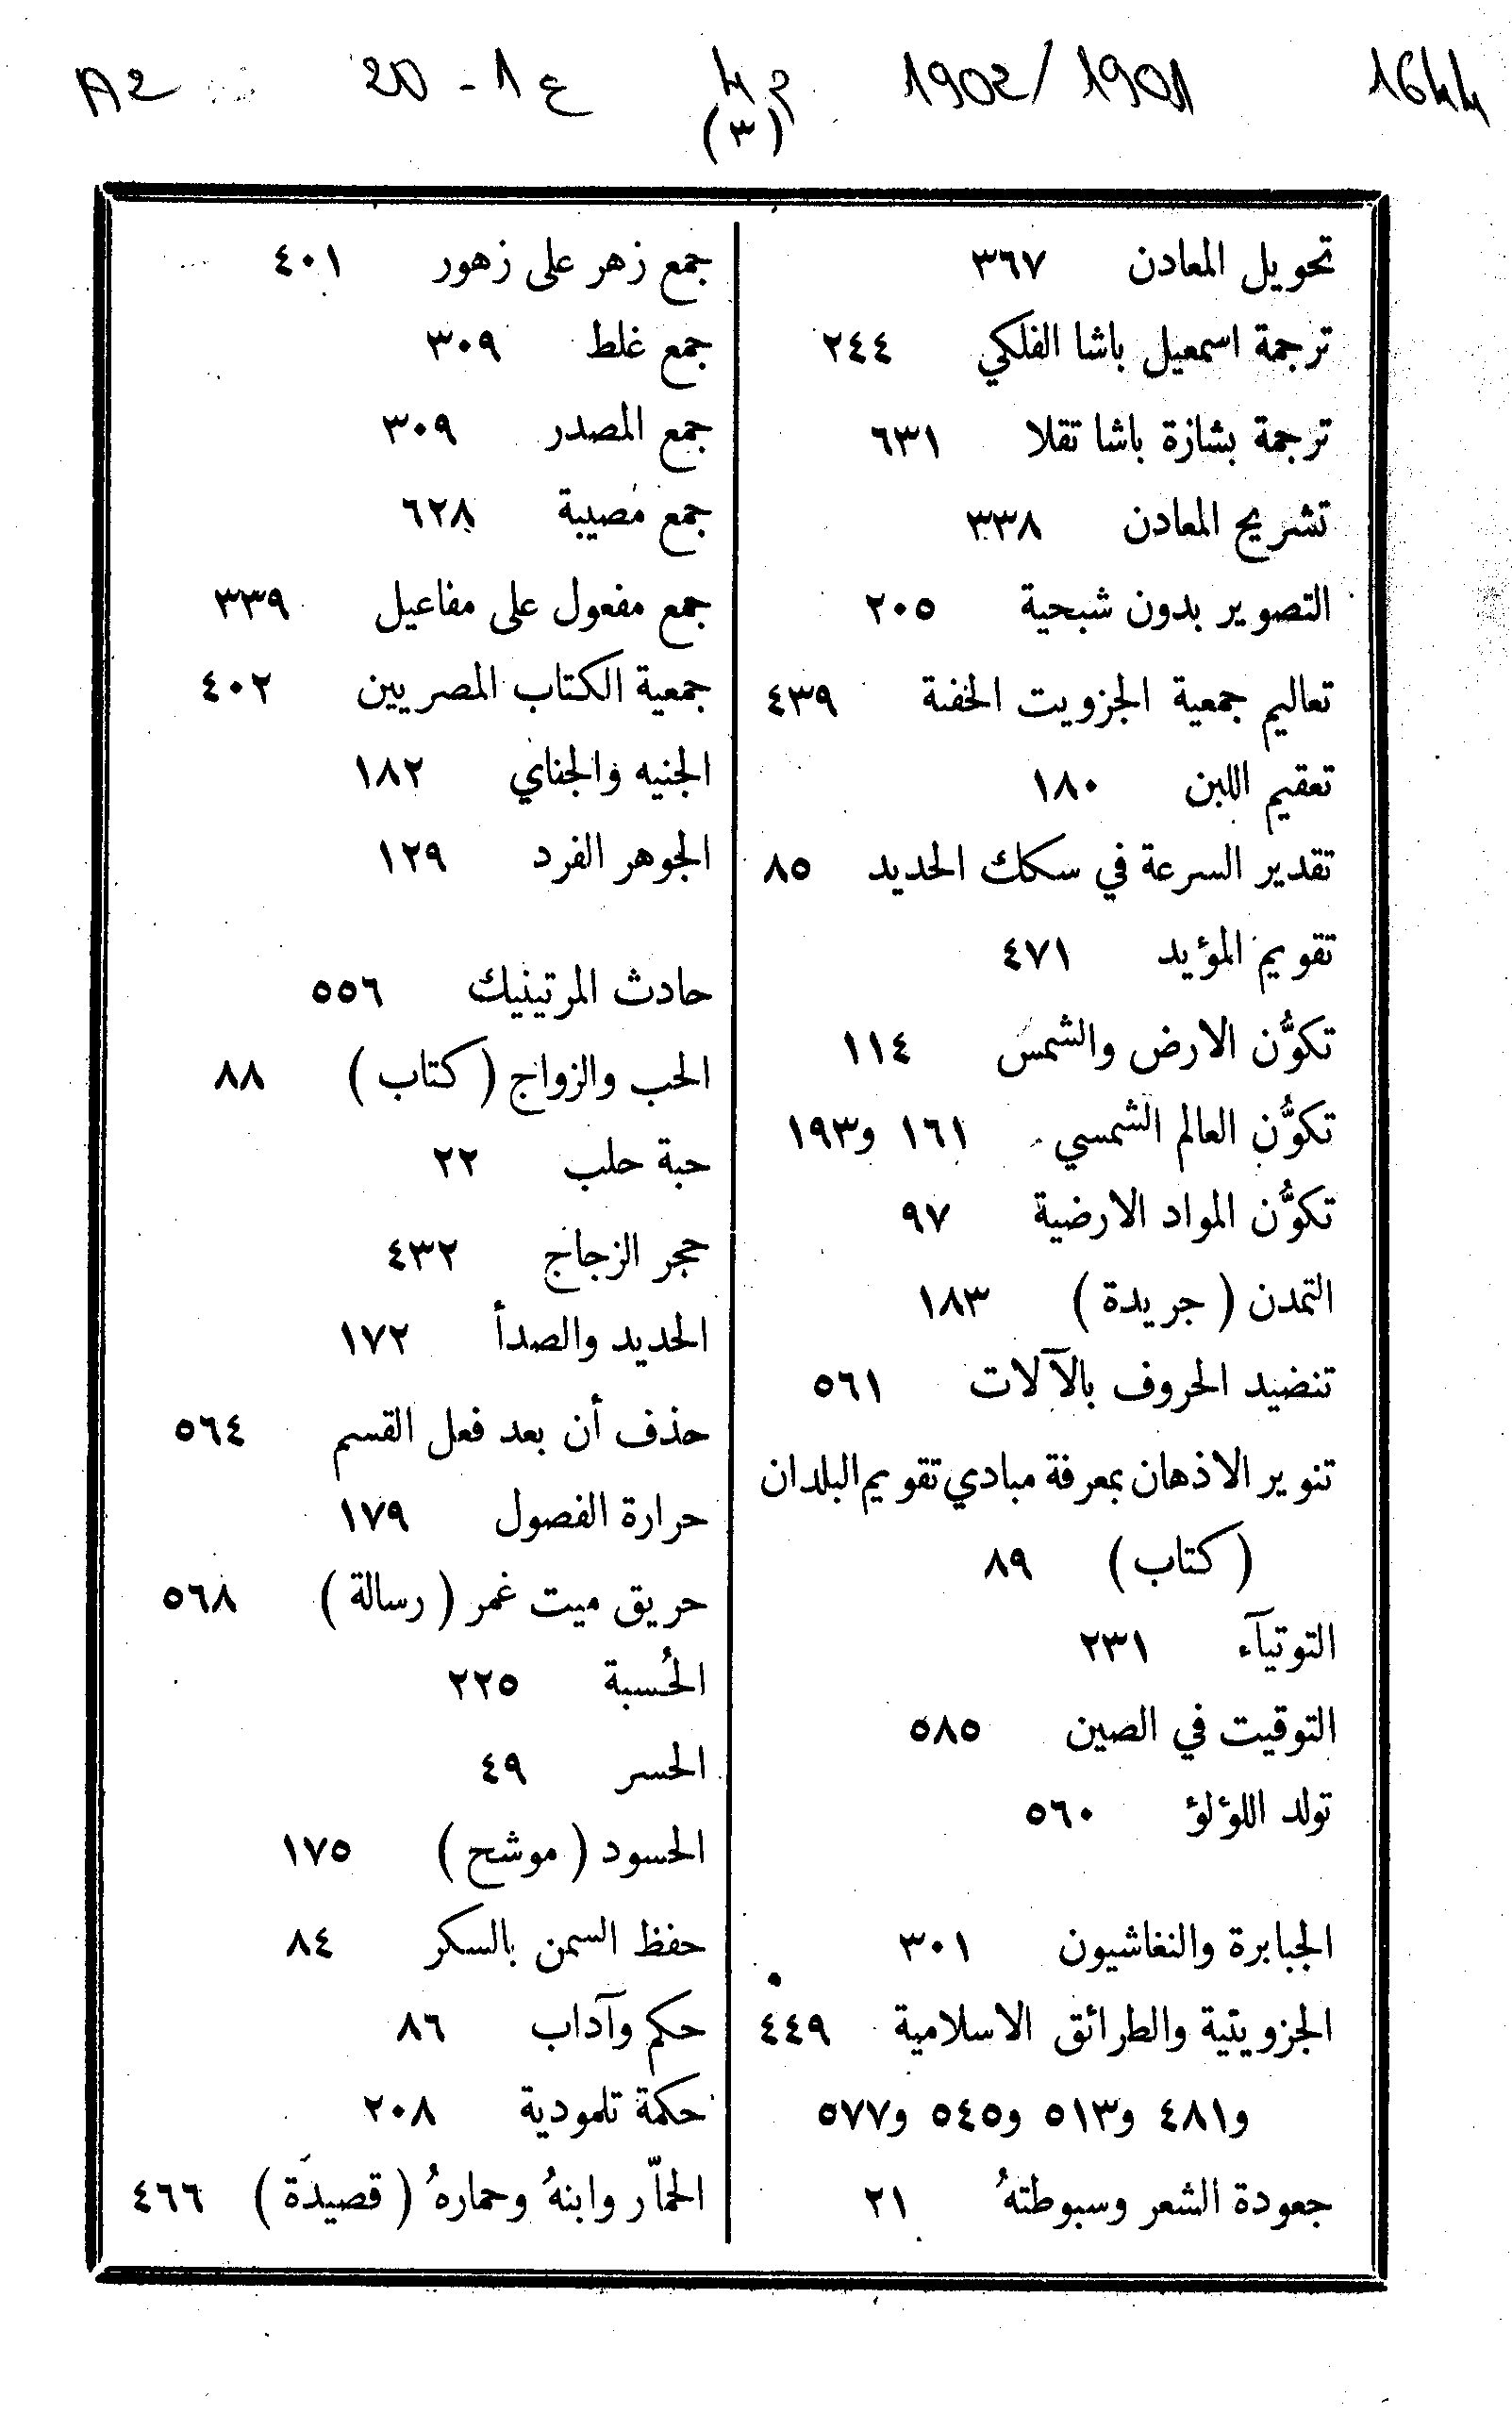 1644 1901/1902 م4 ع 1-20 A2
(٣)
تحويل المعادن ٣٦٧
ترجمة اسمعيل باشا الفلكي ٢٤٤
ترجمة بشارة باشا تقلا ٦٣١
تشريح المعادن ٣٣٨
التصوير بدون شبحية ٢٠٥
تعاليم جمعية الجزويت الخفية ٤٣٩
تعقيم اللبن ١٨٠
تقدير السرعة في سكك الحديد ٨٥
تقويم المؤيد ٤٧١
تكوُّن الارض والشمس ١١٤
تكوُّن العالم الشمسي ١٦١ و١٩٣
تكوُّن المواد الارضية ٩٧
التمدن ( جريدة ) ١٨٣
تنضيد الحروف بالآلات ٥٦١
تنوير الاذهان بمعرفة مبادي تقويم البلدان
( كتاب ) ٨٩
التوتيآء ٢٣١
التوقيت في الصين ٥٨٥
تولد اللؤلؤ ٥٦٠
الجبابرة والنغاشيون ٣٠١
الجزويتية والطرائق الاسلامية ٤٤٩
و٤٨١ و٥١٣ و٥٤٥ و٥٧٧
جعودة الشعر وسبوطتهُ ٢١
جمع زهر على زهور ٤٠١
جمع غلط ٣٠٩
جمع المصدر ٣٠٩
جمع مصيبة ٦٢٨
جمع مفعول على مفاعيل ٣٣٩
جمعية الكتاب المصريين ٤٠٢
الجنيه والجناي ١٨٢
الجوهر الفرد ١٢٩
حادث المرتينيك ٥٥٦
الحب والزواج ( كتاب ) ٨٨
حبة حلب ٢٢
حجر الزجاج ٤٣٢
الحديد والصدأ ١٧٢
حذف أن بعد فعل القسم ٥٦٤
حرارة الفصول ١٧٩
حريق ميت غمر ( رسالة ) ٥٦٨
الحُسبة ٢٢٥
الحسر ٤٩
الحسود ( موشح ) ١٧٥
حفظ السمن بالسكر ٨٤
حكم وآداب ٨٦
حكمة تلمودية ٢٠٨
الحمّار وابنهُ وحمارهُ ( قصيدة ) ٤٦٦